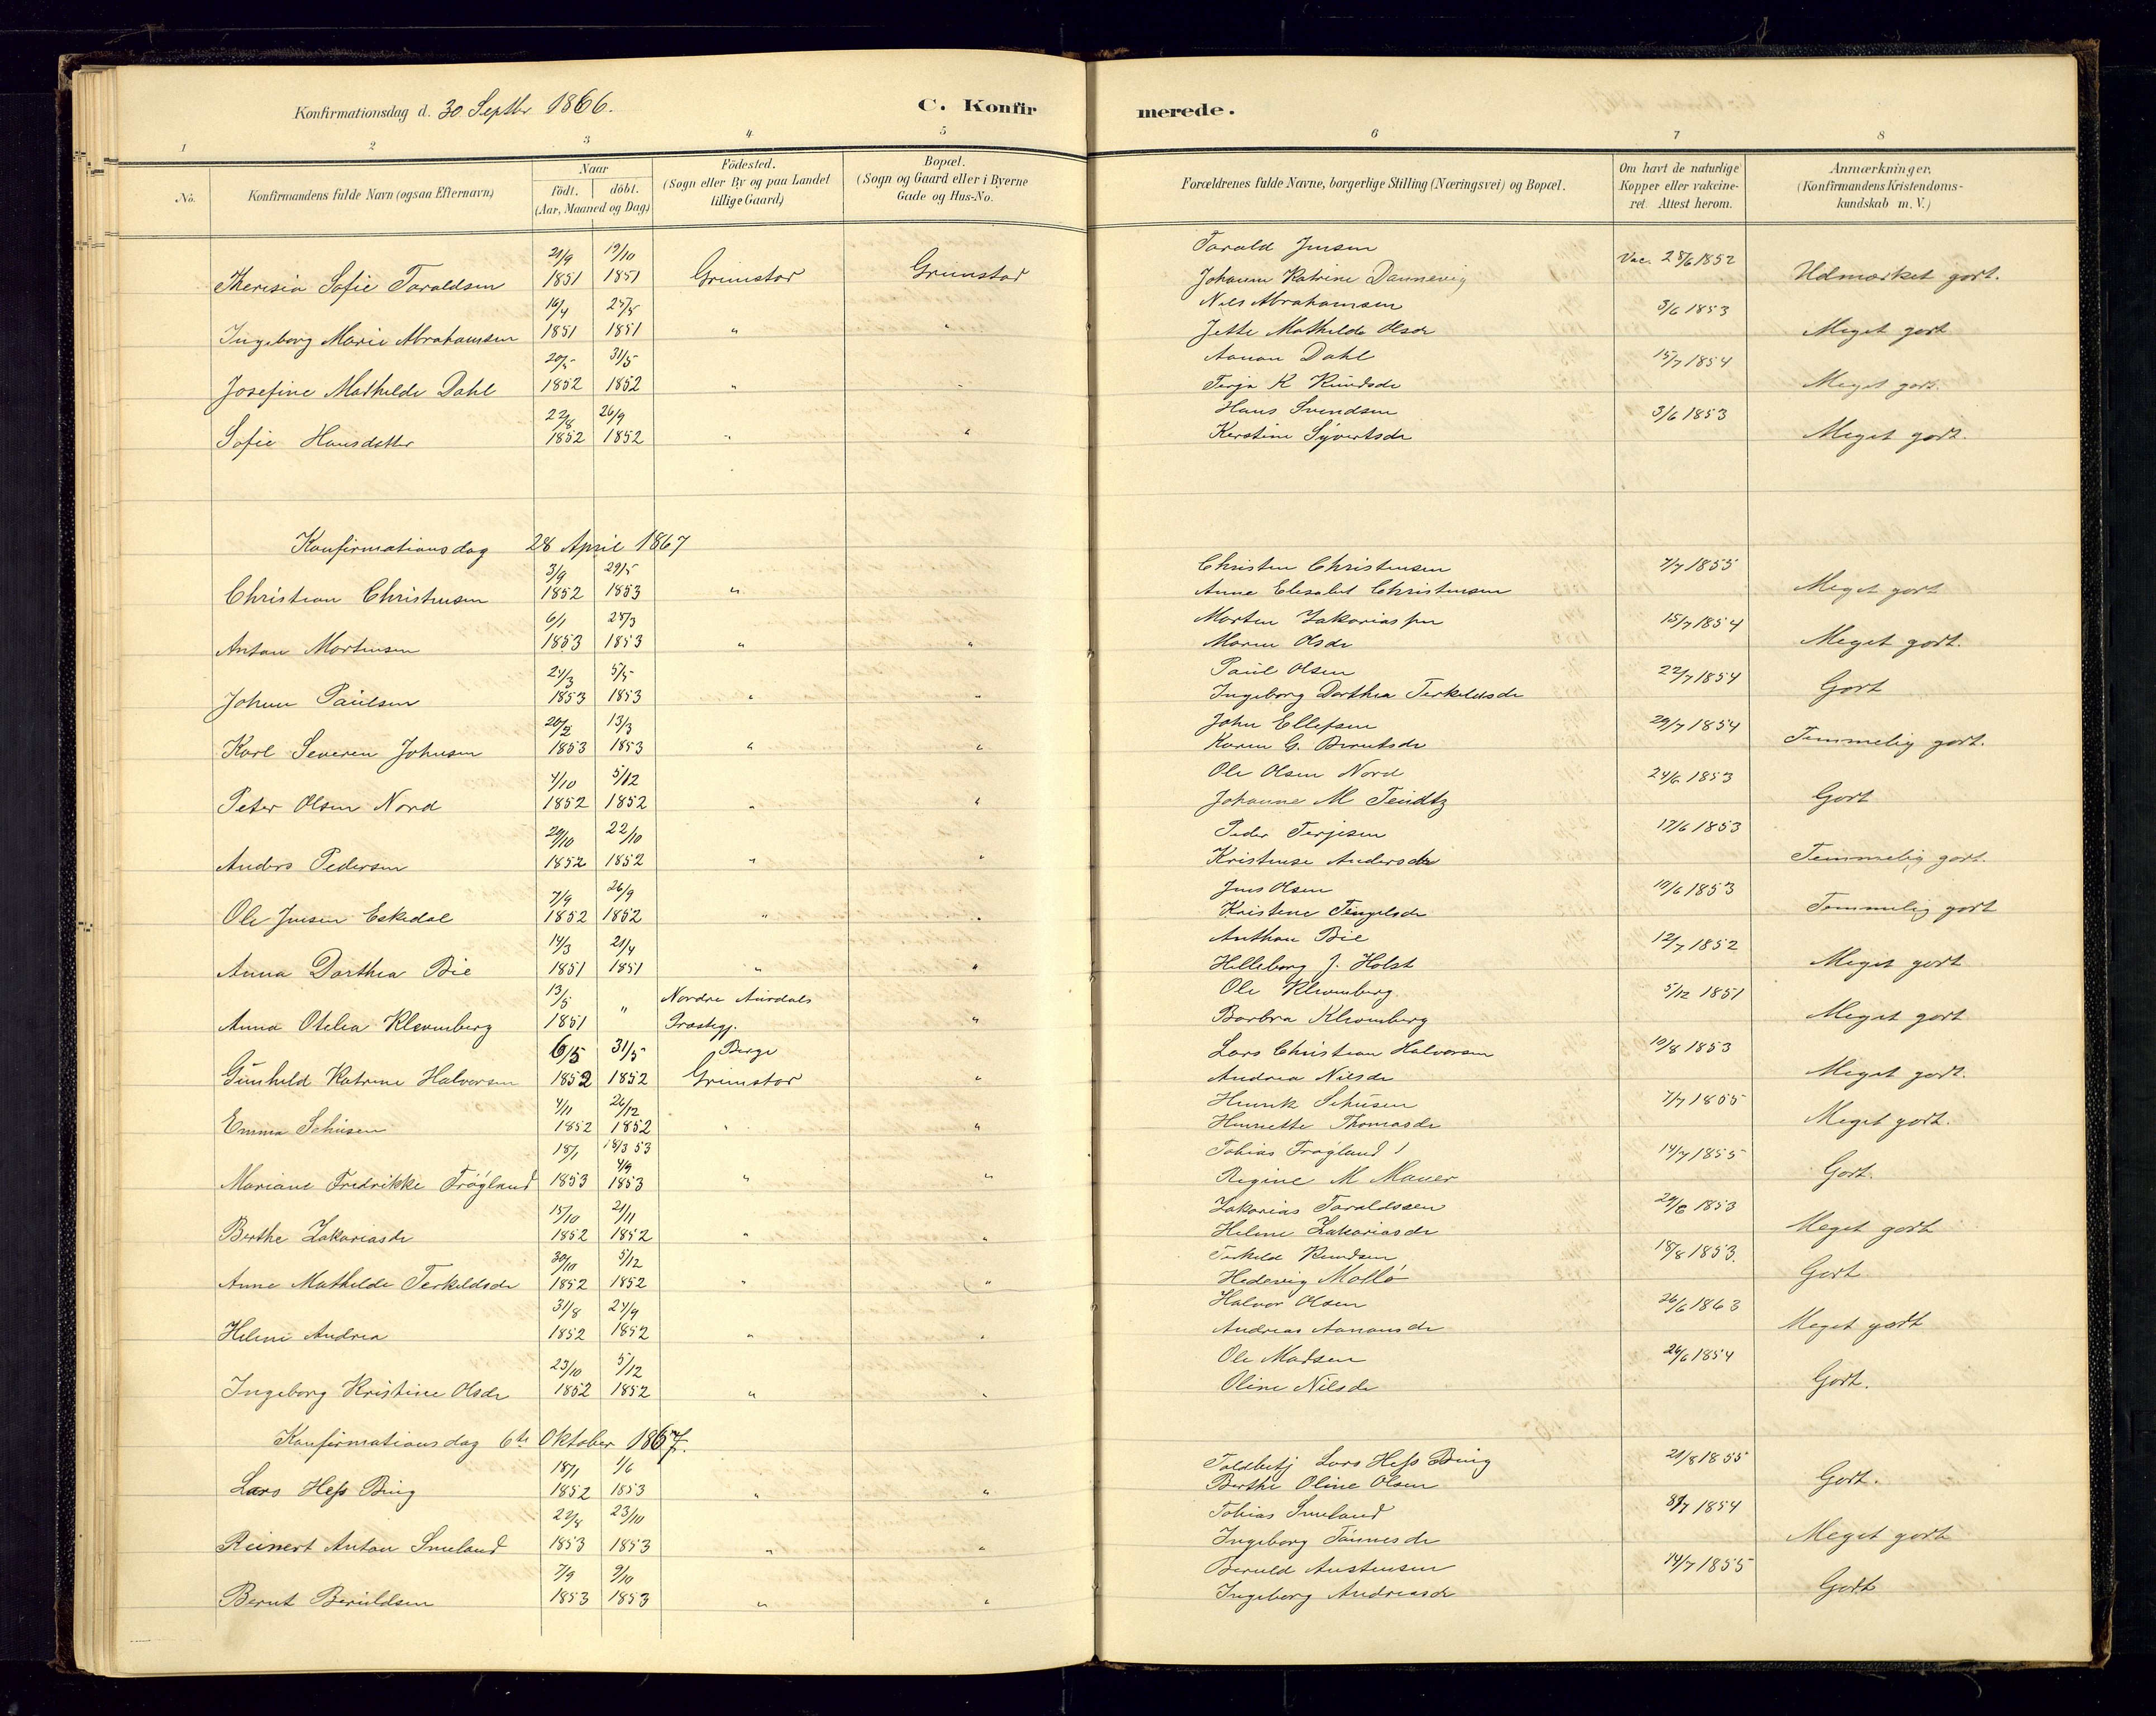 Konfirmationsdag d. 30. Septbr 1866. C. Konfirmerede.
1 2 3 4 5 6 7 8
No. Konfirmandens fulde Navn (ogsaa Efternavn) Naar födt. döbt. (Aar, Maaned og Dag) Födested. (Sogn eller By og paa Landet tillige Gaard) Bopæl. (Sogn og Gaard eller i Byerne Gade og Hus-No. Forældrenes fulde Navne, borgerlige Stilling (Næringsvei) og Bopæl. Om havt de naturlige Kopper eller vakcineret. Attest herom. Anmærkninger, (Konfirmandens Kristendomskundskab m. V.)
21/9 19/10 Tarald Jensen Vac. 28/6 1852
Theresia Sofie Taraldsen 1851 1851 Grimstad Grimstad Johanne Katrine Dannevig Udmærket godt.
16/4 25/5 Nils Abrahamsen 3/6 1853
Ingeborg Marie Abrahamsen 1851 1851 " " Jette Mathilde Olsdr Meget godt
20/5 31/5 Aanon Dahl 15/7 1854
Josefine Mathilde Dahl 1852 1852 " " Terja K Knudsdr Meget godt.
22/8 26/9 Hans Svendsen 3/6 1853
Sofie Hansdatter 1852 1852 " " Kerstine Syvertsdr Meget godt.
Konfirmationsdag 28 April 1867
3/9 29/5 Christen Christensen 7/7 1855
Christian Christensen 1852 1853 " Anne Elisabet Christensen Meget godt
6/1 28/3 Morten Zakariassen 15/7 1854
Anton Mortensen 1853 1853 " " Maren Olsdr Meget godt.
24/3 5/5 Paul Olsen 22/7 1854
Johan Paulsen 1853 1853 " " Ingeborg Dorthea Terkeldsdr Godt
20/2 13/3 John Ellefsen 29/7 1854
Karl Severen Johnsen 1853 1853 " " Karen G. Berntsdr Temmelig godt.
4/10 5/12 Ole Olsen Nord 24/6 1853
Peter Olsen Nord 1852 1852 " " Johanne M Teudtz Godt
20/10 22/10 Peder Terjesen 17/6 1853
Anders Pedersen 1852 1852 " " Kristense Andersdr Temmelig godt.
7/9 26/9 Jens Olsen 10/6 1853
Ole Jensen Eskedal 1852 1852 " " Kristene Tengelsdr Temmelig godt
14/3 21/4 Anthon Bie 12/7 1852
Anna Dorthea Bie 1851 1851 " " Helleborg J. Holst Meget godt
13/5 Nordre Aurdals Ole Klevmberg 5/12 1851
Anna Otelea Klevmberg 1851 " Præstegj. " Barbra Klevmberg Meget godt
6/5 31/5 Berge Lars Christian Halvorsen 10/8 1853
Gunhild Katrine Halvorsen 1852 1852 Grimstad " Andrea Nilsdr Meget godt.
4/11 26/12 Henrik Schüsen 7/7 1855
Emma Schüsen 1852 1852 " " Henriette Thomasdr Meget godt.
18/1 18/3 53 Tobias Frøgland 14/7 1855
Mariane Fredrikke Frøgland 4/9 1853 1853 " " Regine M Mauer Godt.
15/10 21/11 Zakarias Taraldssen 24/6 1853
Berthe Zakariasdr 1852 1852 " " Helene Zakariasdr Meget godt
30/10 5/12 Terkeld Knudsen 18/8 1853.
Anne Mathilde Terkeldsdr 1852 1852 " " Hedevig Mollø Godt
31/8 24/9 Halvor Olsen 26/6 1863
Helene Andrea 1852 1852 " " Andreas Aanonsdr Meget godt
23/10 5/12 Ole Madsen 24/6 1854
Ingeborg Kristine Olsdr 1852 1852 " " Oline Nilsdr Godt.
Konfirmationsdag 6te Oktober 1867.
18/1 1/6 Toldbetj Lars Hess Bing 21/8 1855
Lars Hess Bing 1852 1853 " " Berthe Oline Olsen Godt.
22/8 23/10 Tobias Smeland 8/7 1854
Reinert Anton Smeland 1853 1853 " " Ingeborg Tønnesdr Meget godt
7/9 9/10 Beruld Austensen 14/7 1855
Bernt Beruldsen 1853 1853 " " Ingeborg Andreasdr Godt